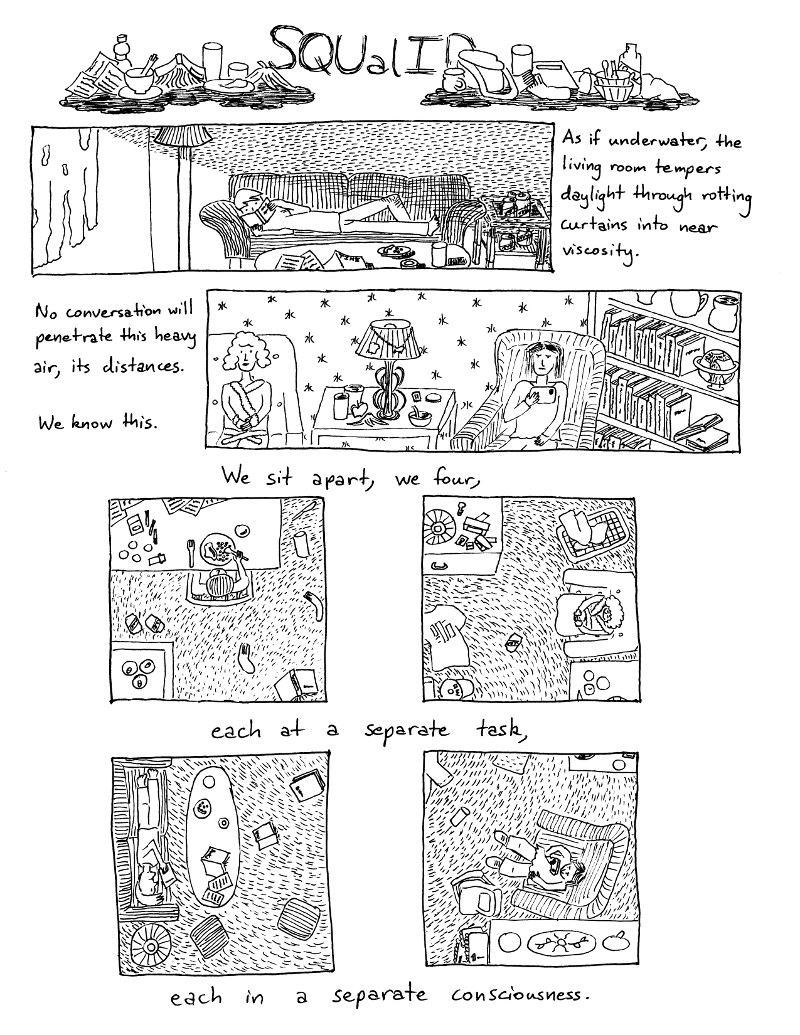 SQUalID
As if underwater, the
living room tempers
daylight through rotting
curtains into near
viscosity.
No conversation will
penetrate this heavy
air, its distances.
We know this.
We sit apart, we four,
each at a separate task,
each in a separate consciousness.